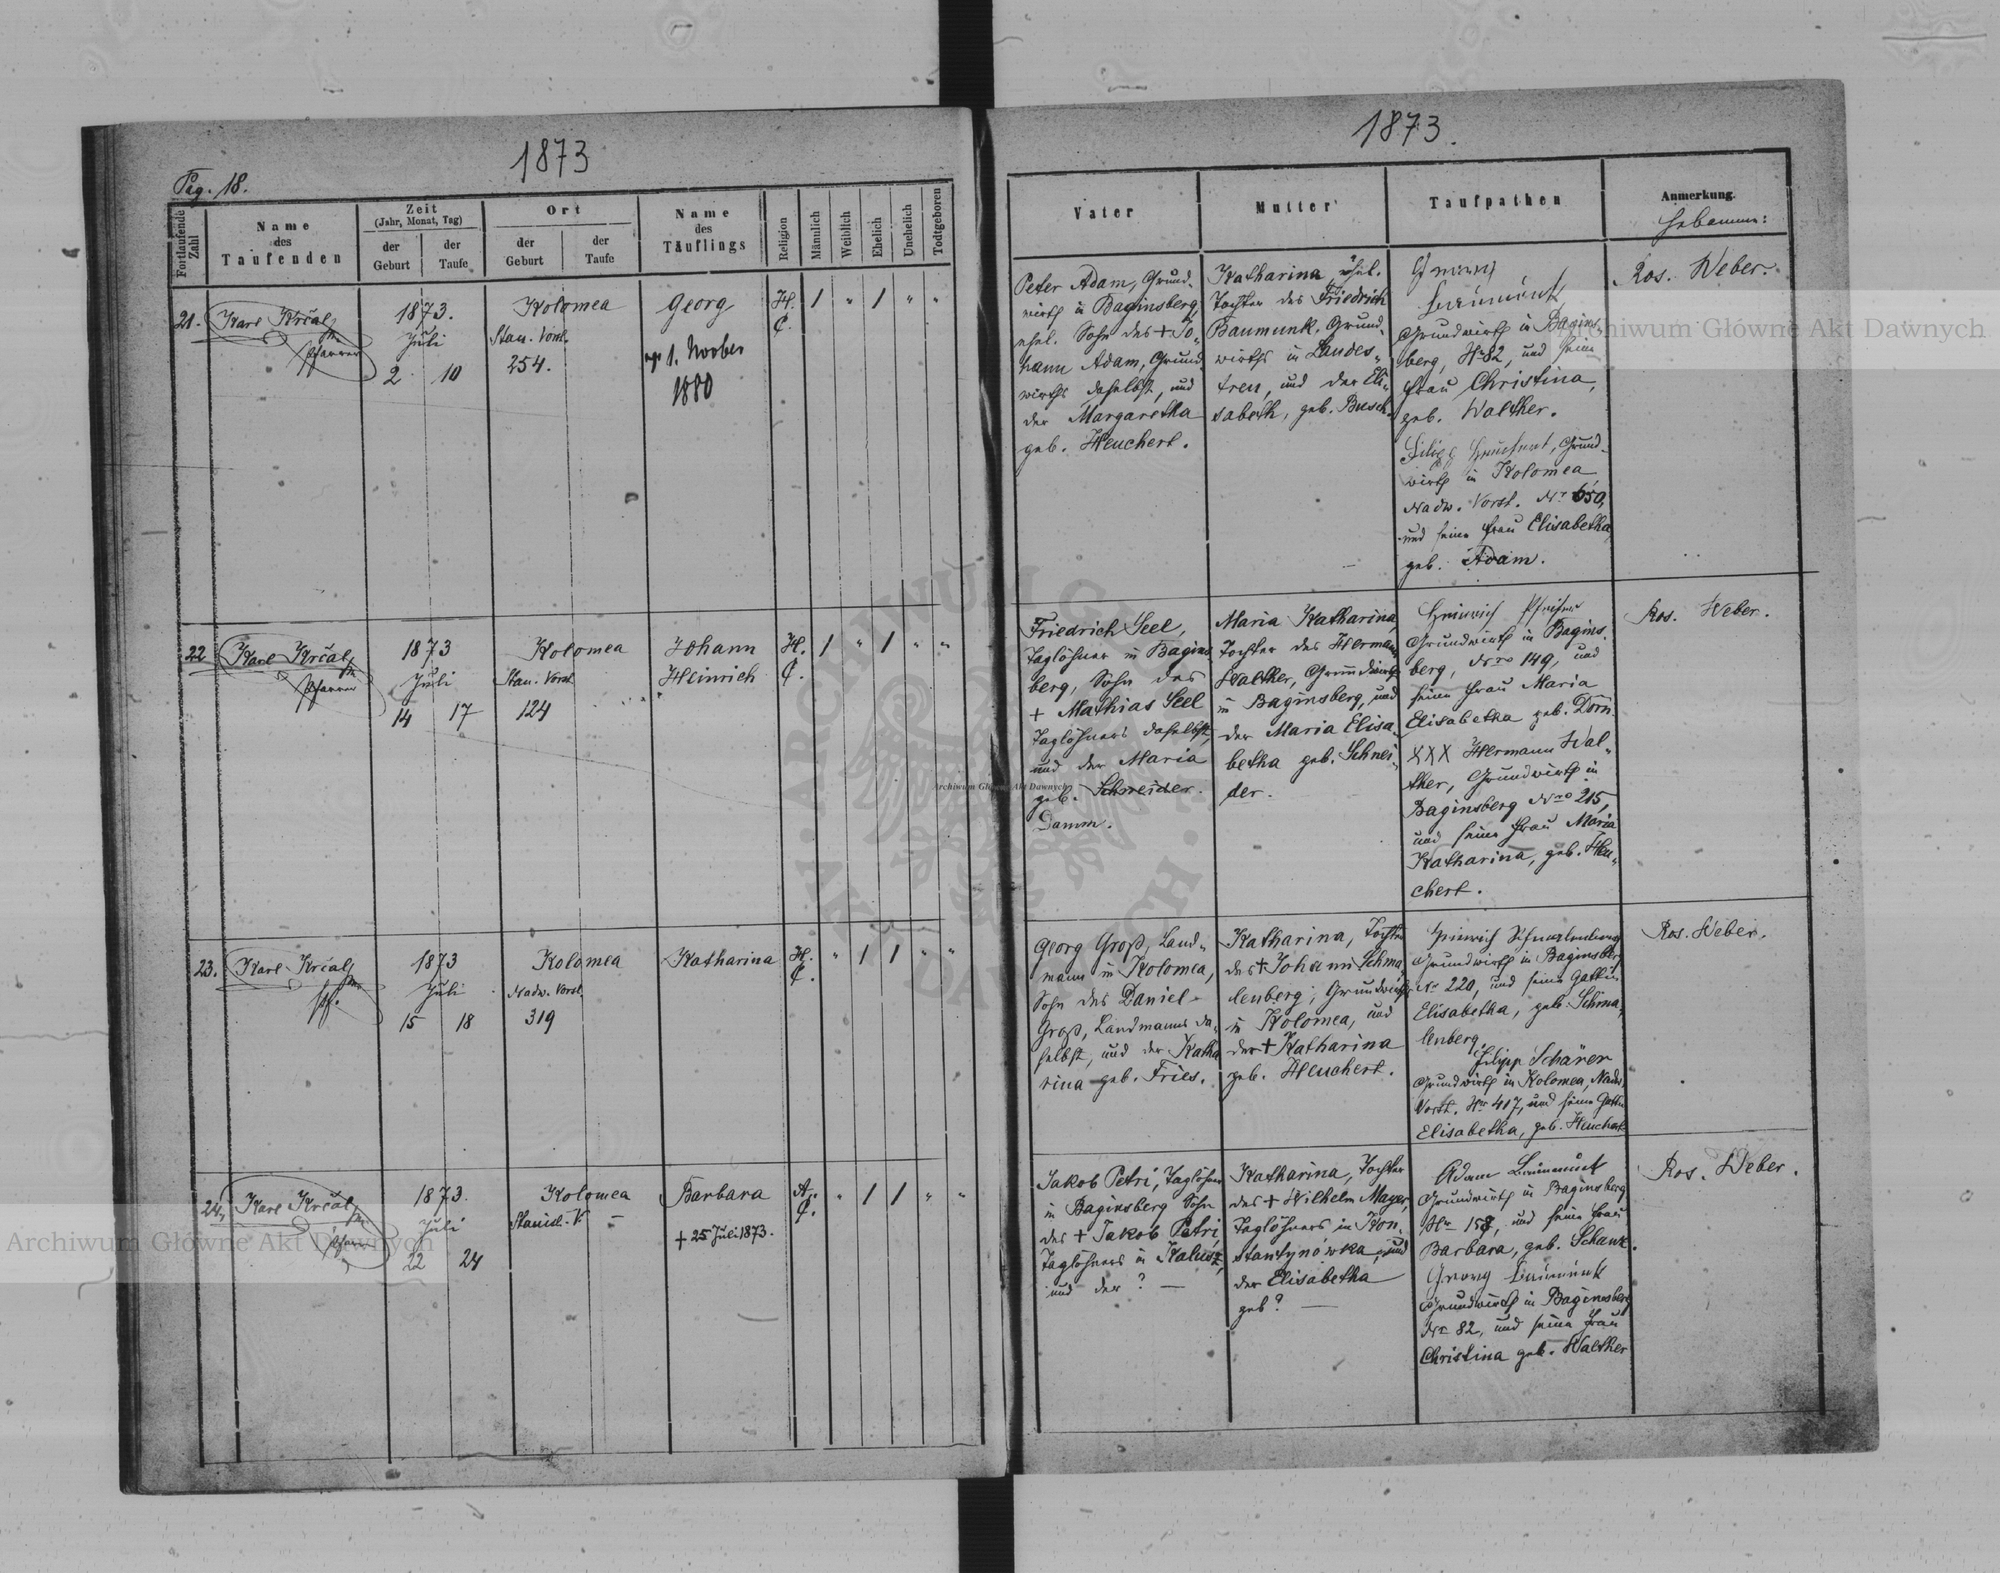 1873
Pag. 18.
Fortlaufende Zahl
Name des Taufenden
Zeit
(Jahr, Monat, Tag)
der Geburt
der Taufe
Ort
der Geburt
der Taufe
Name des Täuflings
Religion
Männlich
Weiblich
Ehelich
Unehelich
Todtgeboren
21.
Karl Krčal
Pfarrer
1873.
Juli
2 10
Kolomea
Stan. Vorst.
254.
Georg
1. Novber
1880
H.
C.
1 " 1 " "
22
Karl Krčal
Pfarrer
1873
Juli
14 17
Kolomea
Stan. Vorst.
124
Johann
Heinrich
H.
C.
1 " 1 " "
23.
Karl Krčal
Pf.
1873
Juli
15 18
Kolomea
Nadw. Vorst.
319
Katharina
H.
C.
" 1 1 " "
24.
Karl Krčal
Pfarr
1873.
Juli
22 24
Kolomea
Stanisl. V. –
Barbara
+ 25 Juli 1873.
A.
C.
" 1 1 " "
1873.
Vater
Mutter
Taufpathen
Anmerkung.
Hebamme:
Peter Adam, Grund-
wirth in Baginsberg,
ehel. Sohn des + Jo-
hann Adam, Grund
wirths daselbst, und
der Margaretha
geb. Heuchert.
Katharina, ehel.
Tochter des Friedrich
Baumunk, Grund-
wirths in Landes-
treu, und der Eli-
sabeth, geb. Busch.
Georg
Baumunk
Grundwirth in Bagins-
berg, Nr 82, und seine
Frau Christina,
geb. Walther.
Filipp Heuchert, Grund-
wirth in Kolomea
Nadw. Vorst. Nr 650,
und seine Frau Elisabetha
geb. Adam.
Ros. Weber.
Friedrich Seel,
Taglöhner in Bagins-
berg, Sohn des
+ Mathias Seel
Taglöhners daselbst,
und der Maria
geb. Schneider.
Damm.
Maria Katharina,
Tochter des Hermann
Walther, Grundwirth
in Baginsberg, und
der Maria Elisa-
betha geb. Schnei-
der.
Heinrich Pfeifer
Grundwirth in Bagins-
berg, Nro 149, und
seine Frau Maria
Elisabetha geb. Dorn.
XXX Hermann Wal-
ther, Grundwirth in
Baginsberg Nro 215,
und seine Frau Maria
Katharina, geb. Heu-
chert.
Ros. Weber.
Georg Groß, Land-
mann in Kolomea,
Sohn des Daniel
Groß, Landmanns da-
selbst, und der Katha
rina geb. Fries.
Katharina, Tochter
des + Johann Schma-
lenberg, Grundwirths
in Kolomea, und
der + Katharina
geb. Heuchert.
Heinrich Schmalenberg
Grundwirth in Baginsberg
Nr 220, und seine Gattin
Elisabetha, geb. Schma-
lenberg.
Filipp Schärer
Grundwirth in Kolomea, Nadw.
Vorst. Nr 417, und seine Gattin
Elisabetha, geb. Heuchert
Ros. Weber.
Jakob Petri, Taglöhner
in Baginsberg Sohn
des + Jakob Petri,
Taglöhners in Kalusz,
und der ? —
Katharina, Tochter
des + Wilhelm Mayer,
Taglöhners in Kon-
stantynówka, und
der Elisabetha
geb? —
Adam Baumunk
Grundwirth in Baginsberg,
Nr 158, und seine Frau
Barbara, geb. Schank.
Georg Baumunk
Grundwirth in Baginsberg
Nr 82, und seine Frau
Christina geb. Walther
Ros. Weber.
Archiwum Główne Akt Dawnych
Archiwum Główne Akt Dawnych
Archiwum Główne Akt Dawnych